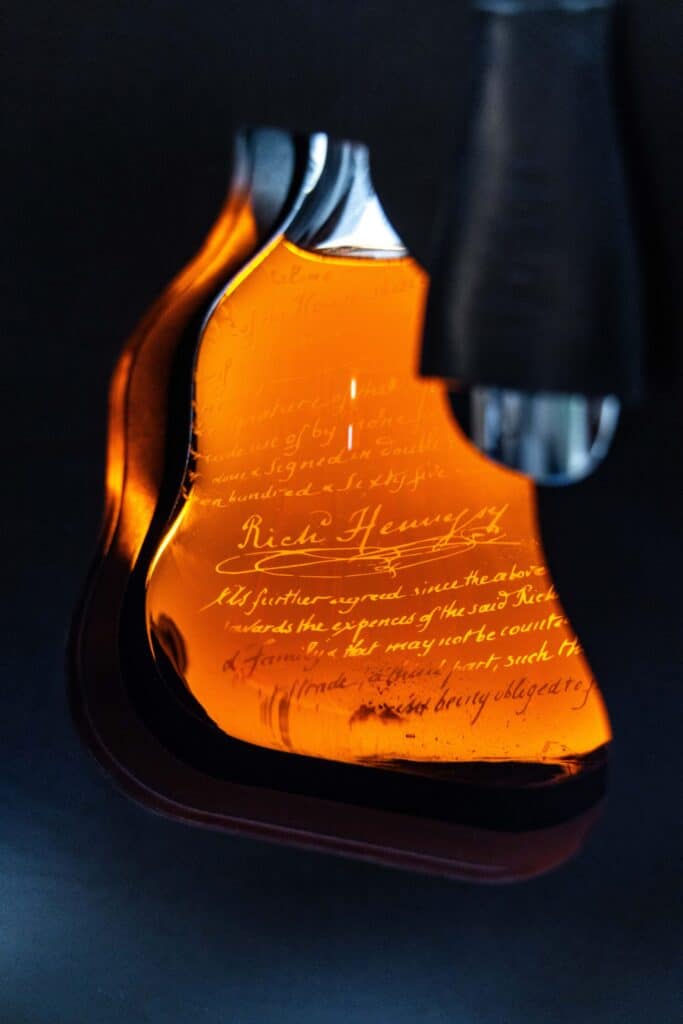 of the House
signature of that
made use of by none
& signed in double
hundred & Sixty five
Richd Hennessy
It is further agreed since the above
towards the expences of the said Rich
& Family & that may not be counte
trade, a third part, such th
being obliged to